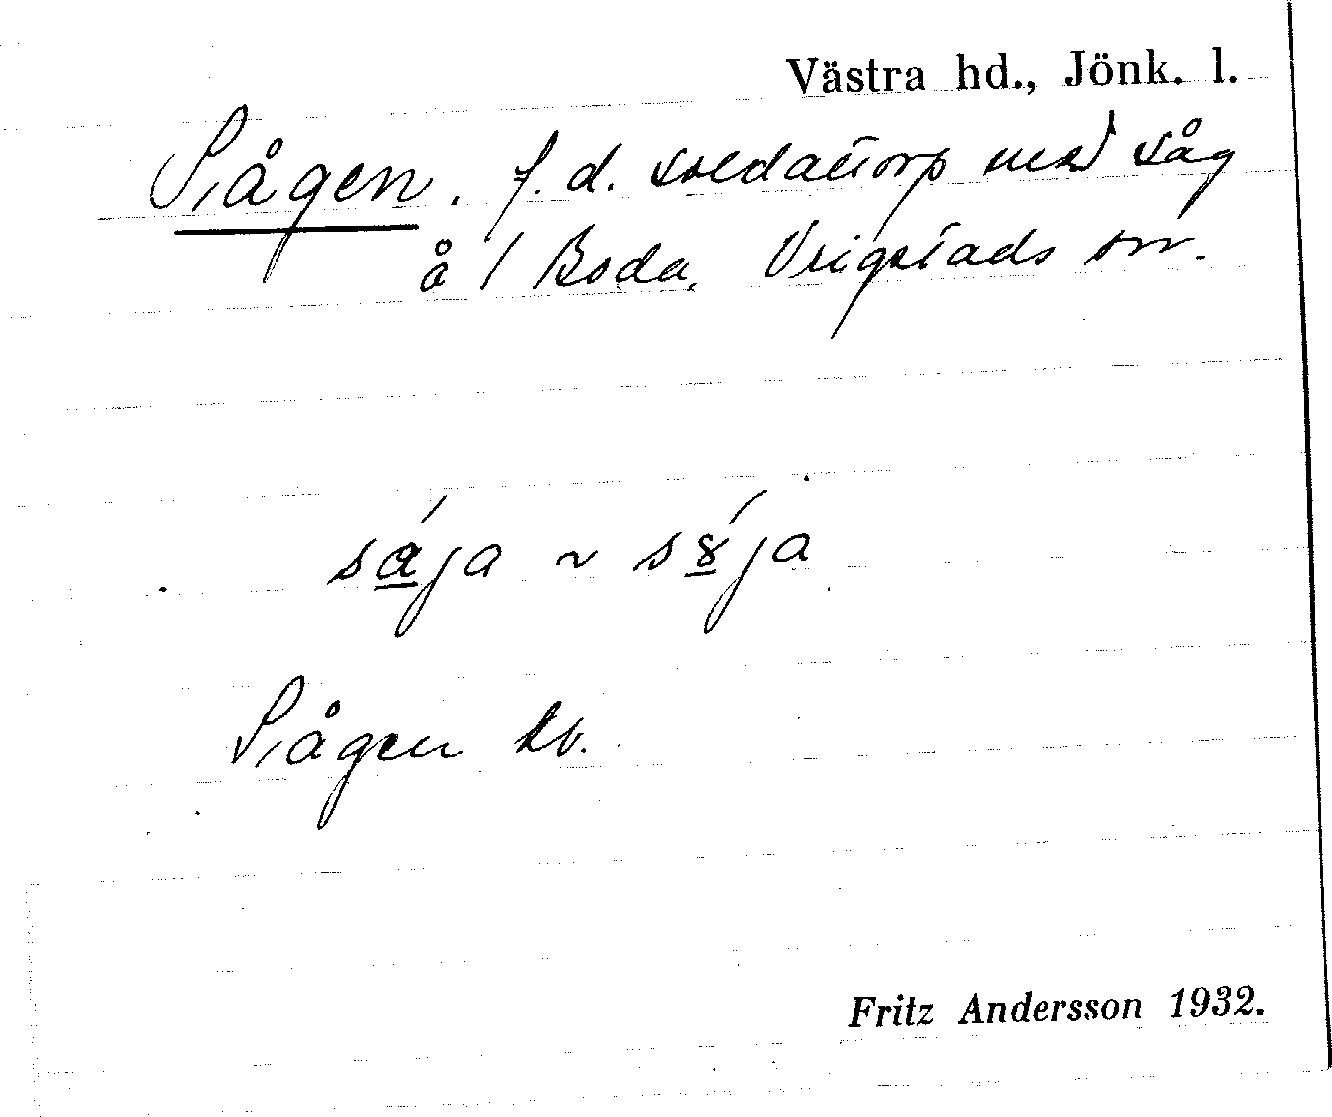 Västra hd., Jönk. l.
Sågen. f. d. soldattorp med såg
å 1 Boda, Vrigstads sn.
sája ~ sɤ́ja
Sågen kv.
Fritz Andersson 1932.